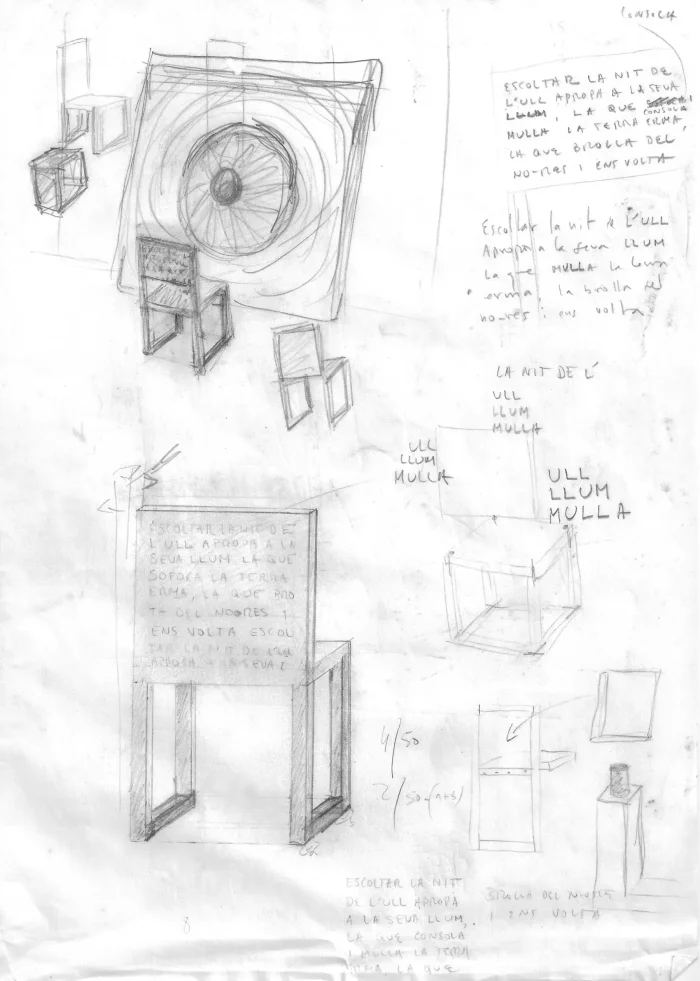 CONSOLA
ESCOLTAR LA NIT DE
L'ULL APROPA A LA SEVA
LLUM, LA QUE CONSOLA
MULLA LA TERRA ERMA,
LA QUE BROLLA DEL
NO-RES I ENS VOLTA
Escoltar la nit de L'ULL
Apropa a la seva LLUM
La que MULLA la terra
erma, la brolla del
no-res i ens volta
LA NIT DE L'
ULL
LLUM
MULLA
ULL
LLUM
MULLA
ULL
LLUM
MULLA
ESCOLTAR LA NIT DE
L'ULL APROPA A LA
SEVA LLUM LA QUE
LA TERRA
ERMA, LA QUE BRO
TA DEL NO-RES I
ENS VOLTA ESCOL
TAR LA NIT DE L'ULL
APROPA A LA SEVA L
4/50
2/50
ESCOLTAR LA NIT
DE L'ULL APROPA
A LA SEVA LLUM,
LA QUE CONSOLA
I MULLA LA TERRA
ERMA, LA QUE
BROLLA DEL
I ENS VOLTA
8